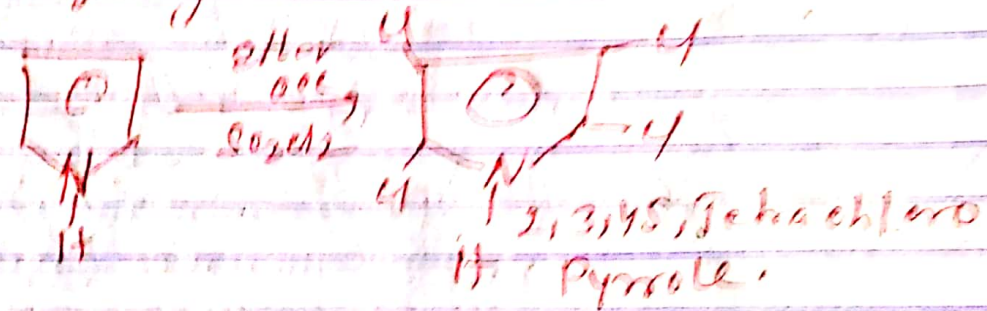 ether
0°C
SO2Cl2
N
H
Cl
Cl
Cl
Cl
N
H
2,3,4,5, Tetrachloro
Pyrrole.